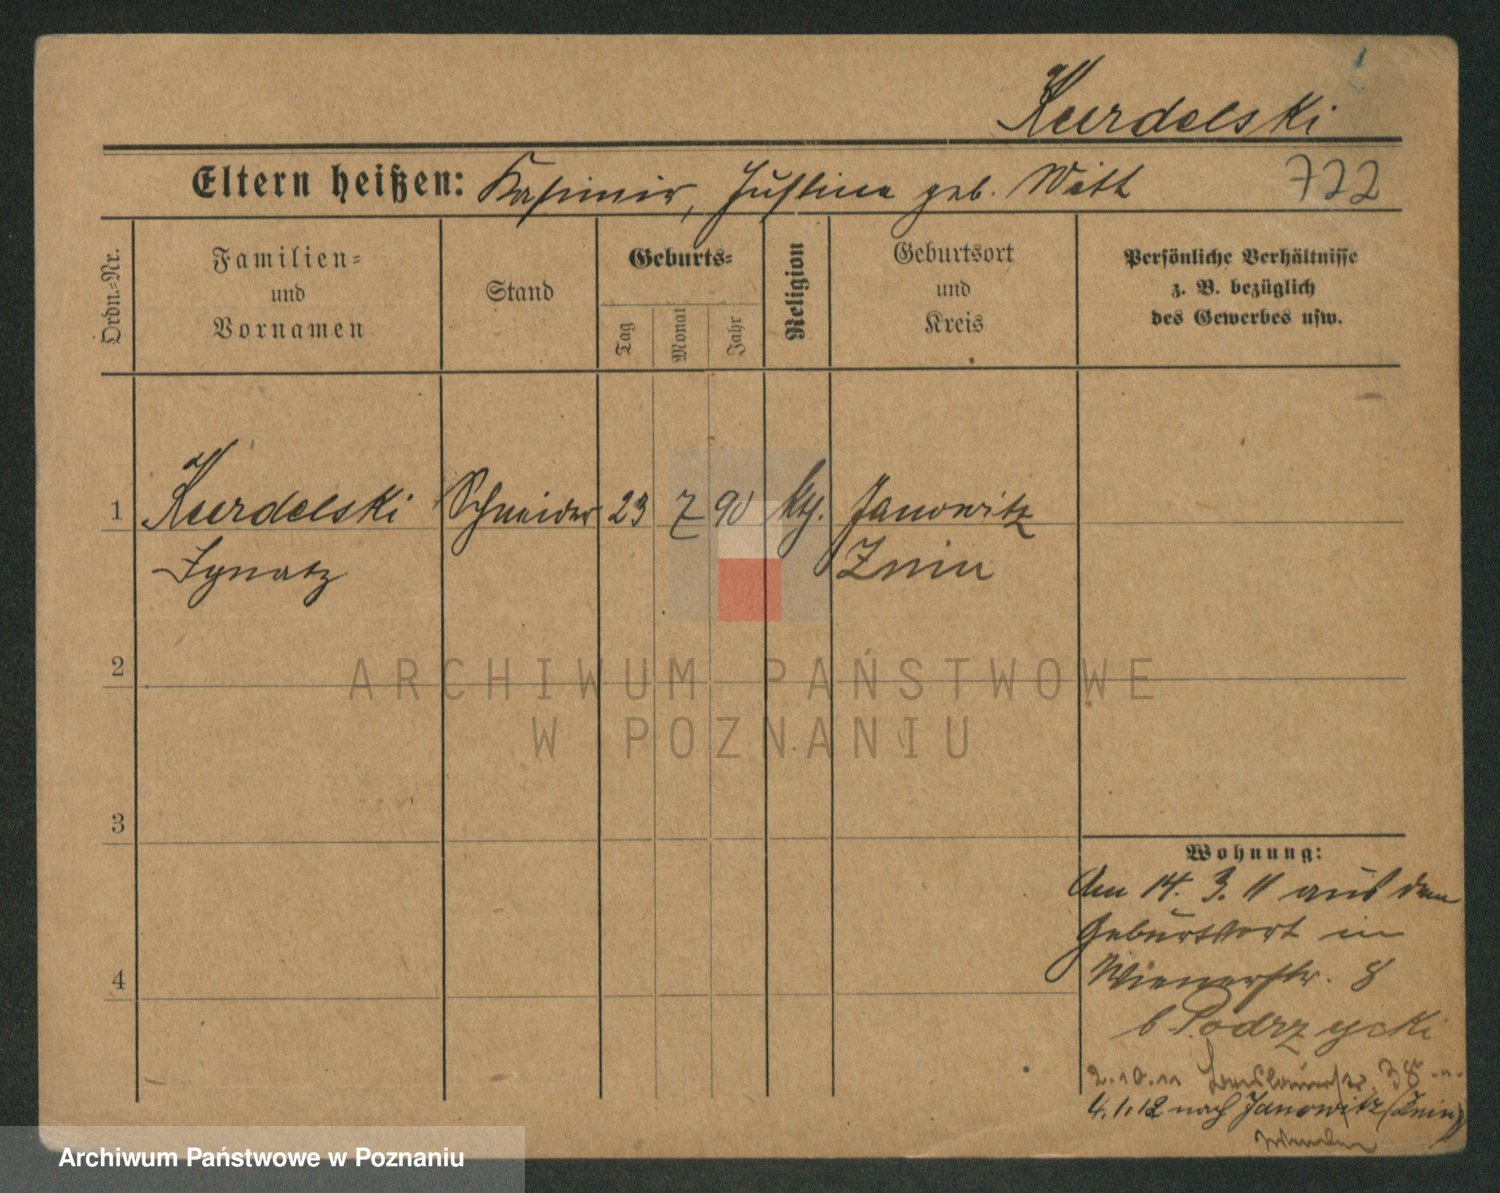 Kurdelski
Eltern heißen: Kasimir, Justine geb. Witt 722
Ordn.-Nr.
Familien-
und
Vornamen
Stand
Geburts-
Tag
Monat
Jahr
Religion
Geburtsort
und
Kreis
Persönliche Verhältnisse
z. B. bezüglich
des Gewerbes usw.
1 Kurdelski Schneider 23 7 90 kth. Janowitz
Ignatz Znin
2
ARCHIWUM PAŃSTWOWE
W POZNANIU
3
Wohnung:
Am 14. 3. 11 aus dem
Geburtsort in
Wienerstr. 8
4
b Podrzycki
2.10.11 38
4.1.12 nach Janowitz (Znin)
Archiwum Państwowe w Poznaniu